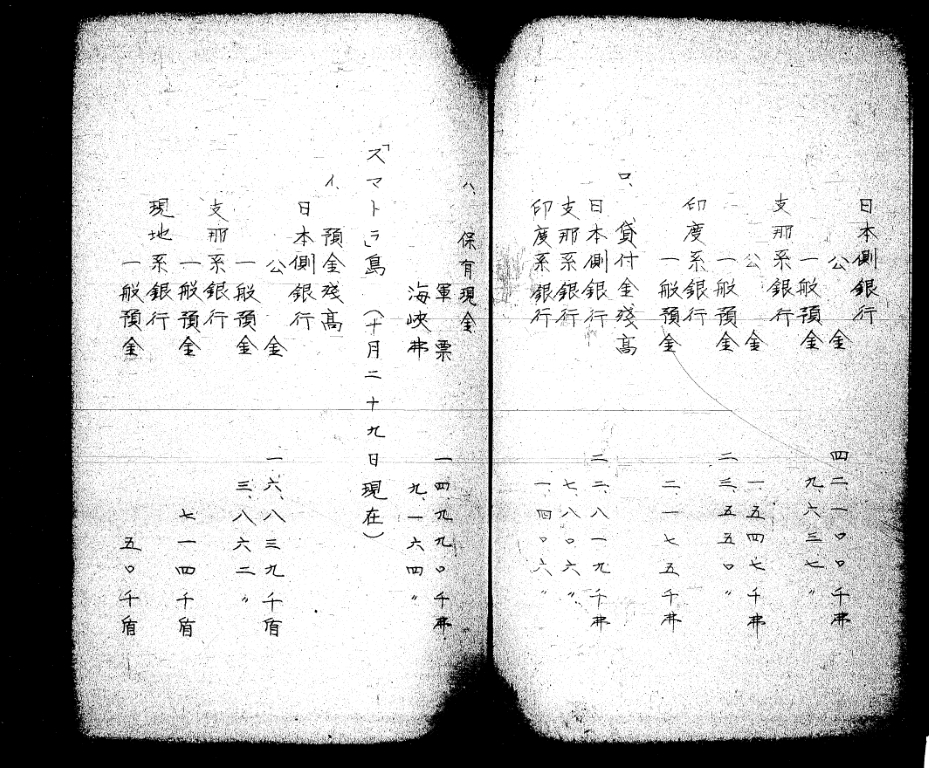 日本側銀行
公金 四二、一〇〇千弗
一般預金 九、六三七〃
支那系銀行
公金 一、五四七千弗
一般預金 二三、五五〇〃
印度系銀行
一般預金 二、一七五千弗
ロ、貸付金残高
日本側銀行 二二、八一九千弗
支那系銀行 七、八〇六〃
印度系銀行 一、四〇六〃
ハ、保有現金
軍票 一四、九九〇千弗
海峡弗 九、一六四〃
「スマトラ」島(十月二十九日現在)
イ、預金残高
日本側銀行
公金 一六、八三九千盾
一般預金 三、八六二〃
支那系銀行
一般預金 七一四千盾
現地系銀行
一般預金 五〇千盾